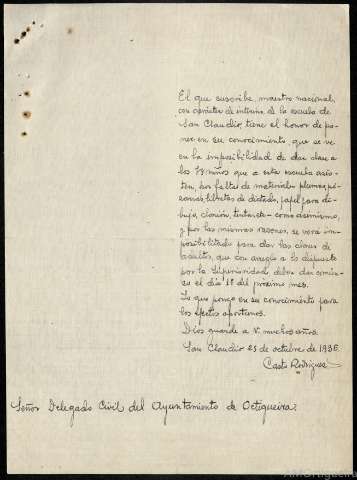 El que suscribe, maestro nacional,
con carácter de interino, de la escuela de
San Claudio, tiene el honor de po-
ner en su conocimiento, que se ve
en la imposibilidad de dar clase a
los niños que a esta escuela asis-
ten, por falta de material: plumas, pi-
zarras, libretas de dictado, papel para di-
bujo, clarión, tinta, etc- como asimismo,
y por las mismas razones, se verá im-
posibilitado para dar las clases de
adultos, que con arreglo a lo dispuesto
por la Superioridad, deben dar comien-
zo el día 1º del próximo mes.
Lo que pongo en su conocimiento para
los efectos oportunos.
Dios guarde a V. muchos años.
San Claudio 25 de octubre de 1936.
Casto Rodríguez
Señor Delegado Civil del Ayuntamiento de Ortigueira.
AMOrtigueira